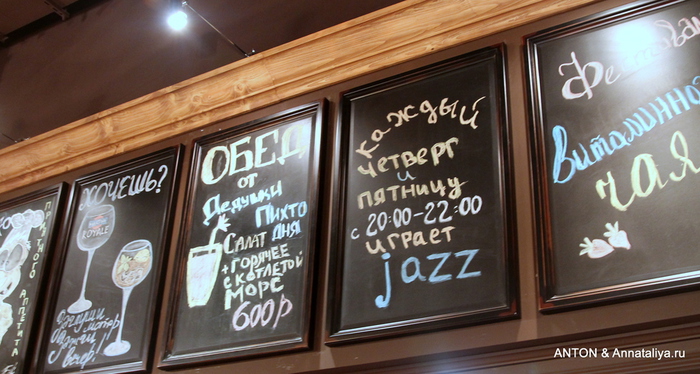 ПРИЯТНОГО
АППЕТИТА
ХОЧЕШЬ?
ROYALE
вечер!
ОБЕД
от
Дедушки
Пихто
САЛАТ ДНЯ
+ горячее
с котлетой
МОРС
600р
каждый
четверг
и
пятницу
с 20:00-22:00
играет
jazz
Фестиваль
витаминно
чая
ANTON & Annataliya.ru